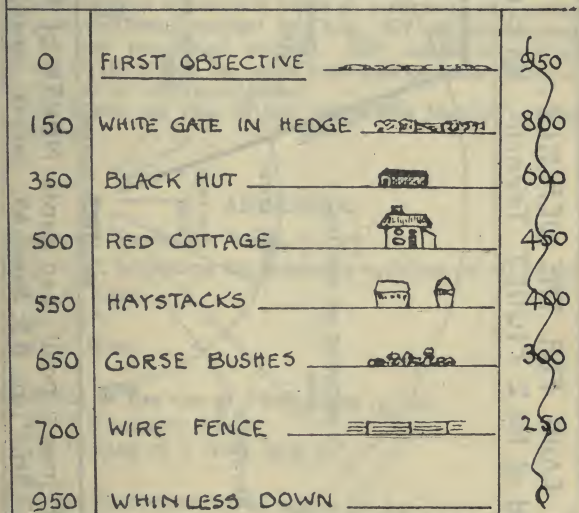 0 FIRST OBJECTIVE 950
150 WHITE GATE IN HEDGE 800
350 BLACK HUT 600
500 RED COTTAGE 450
550 HAYSTACKS 400
650 GORSE BUSHES 300
700 WIRE FENCE 250
950 WHINLESS DOWN 0